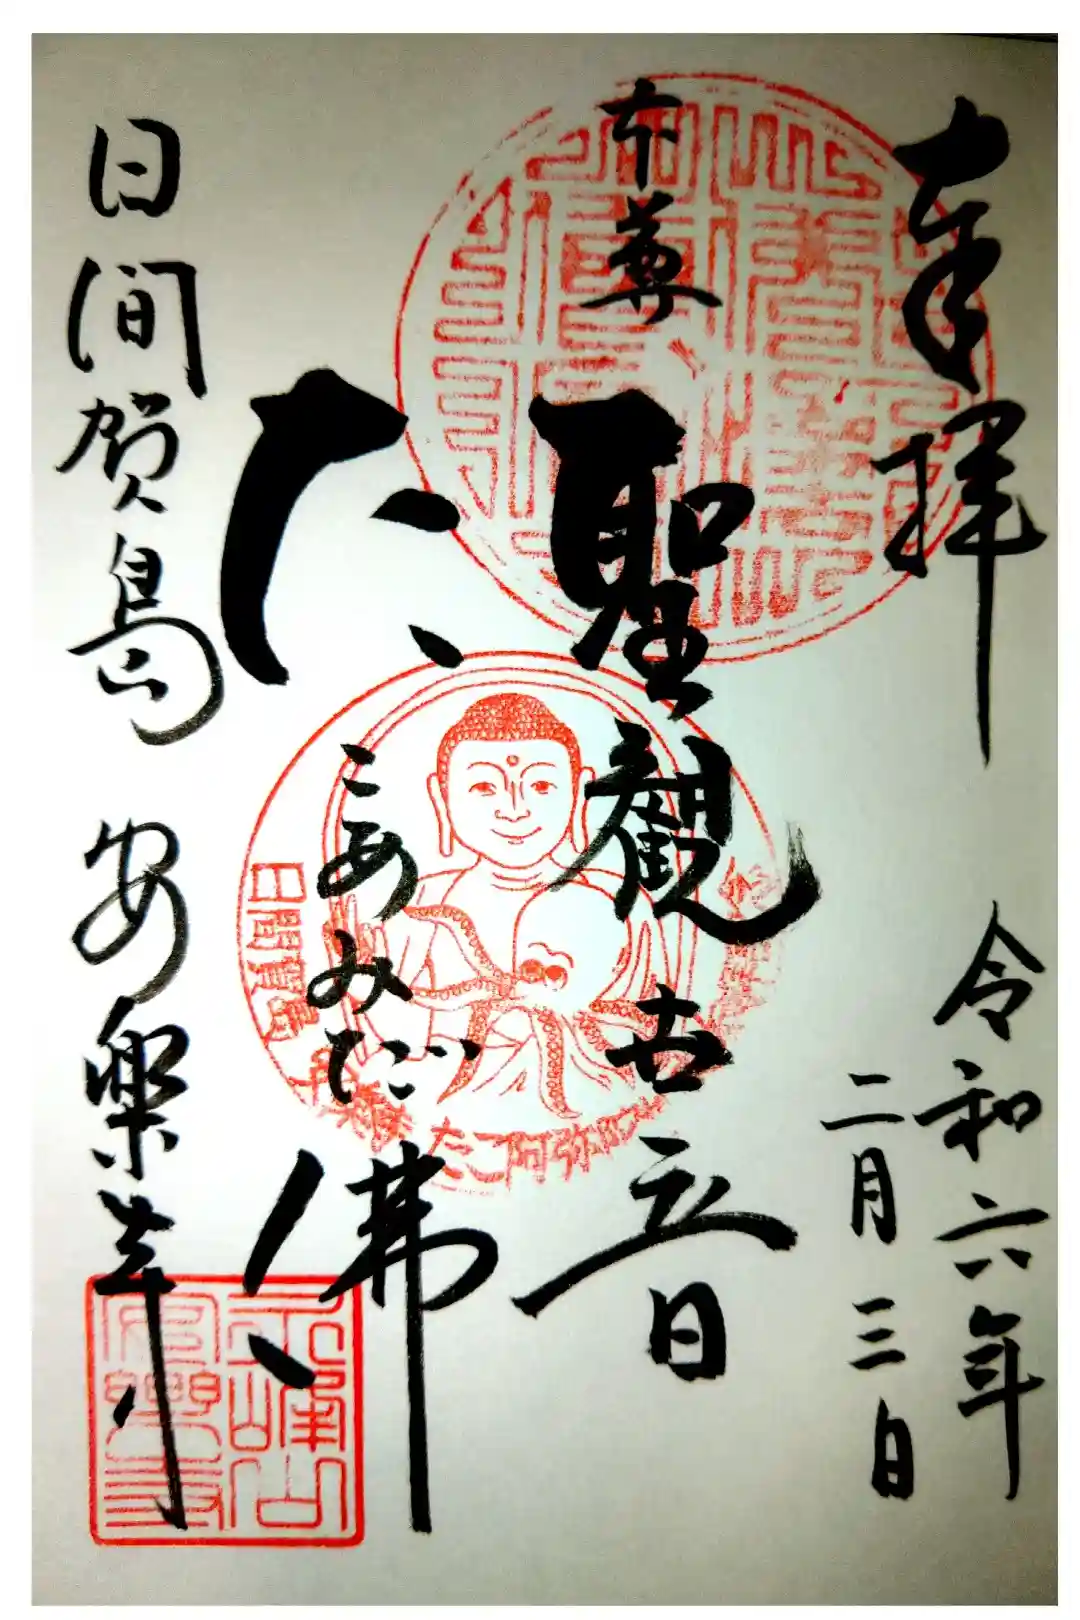 奉拝
令和六年
二月三日
本尊
聖觀世音
たこあみだ佛
日間賀島 安楽寺
日間賀島
たこ阿弥陀